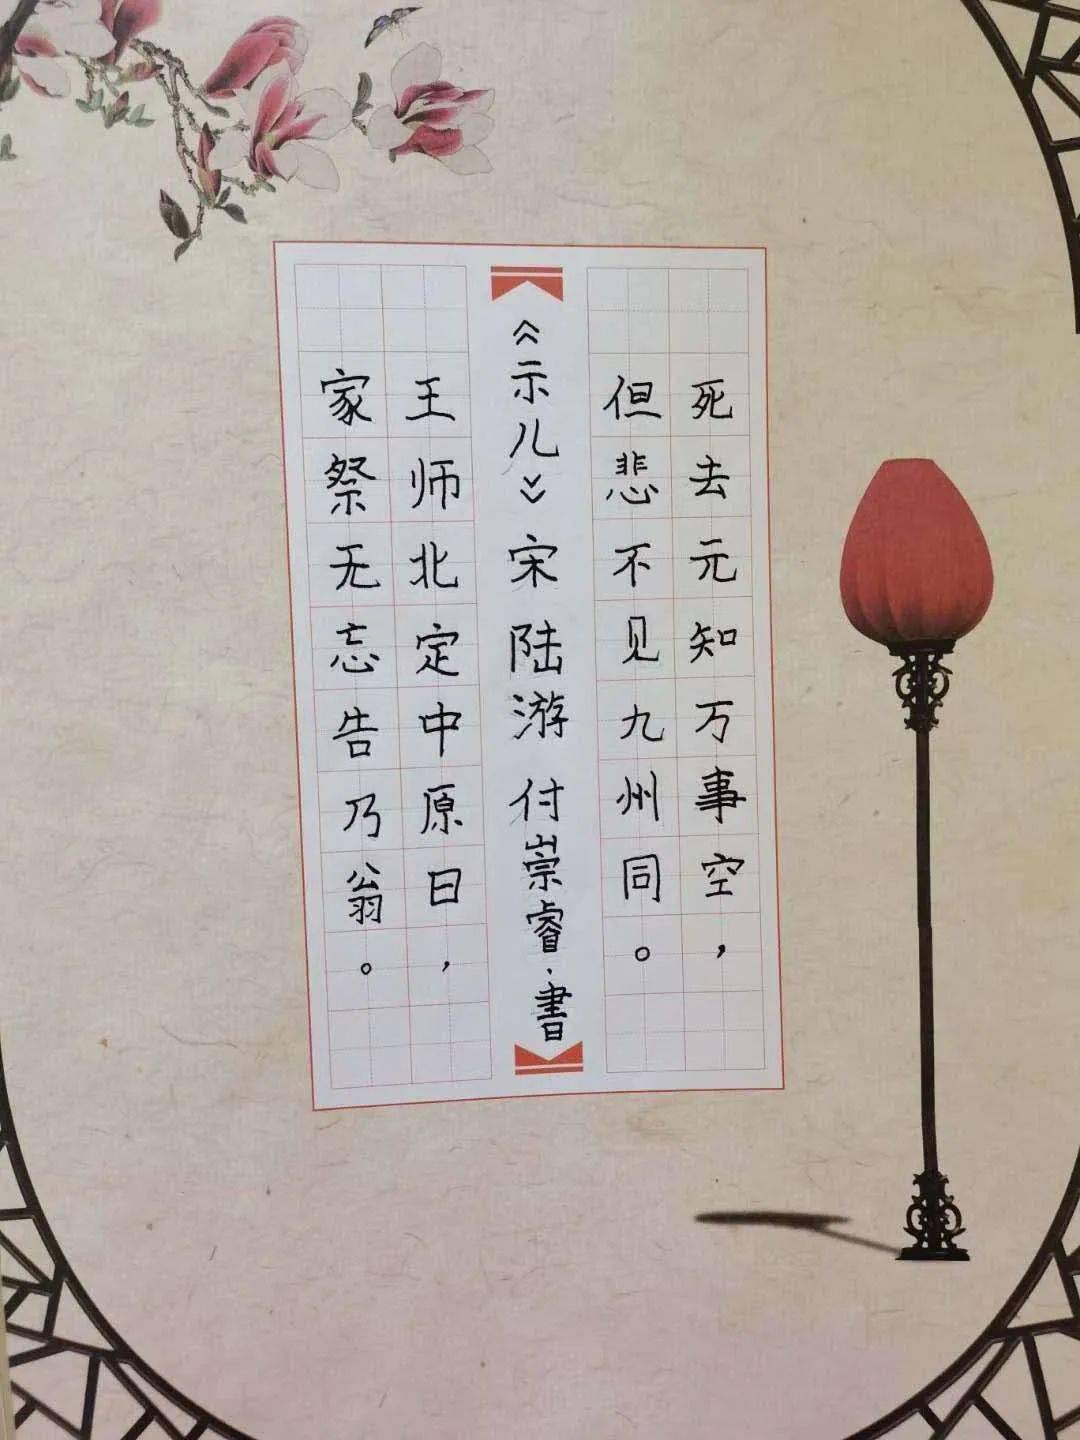 死去元知万事空，
但悲不见九州同。
《示儿》宋陆游 付崇睿·書
王师北定中原日，
家祭无忘告乃翁。